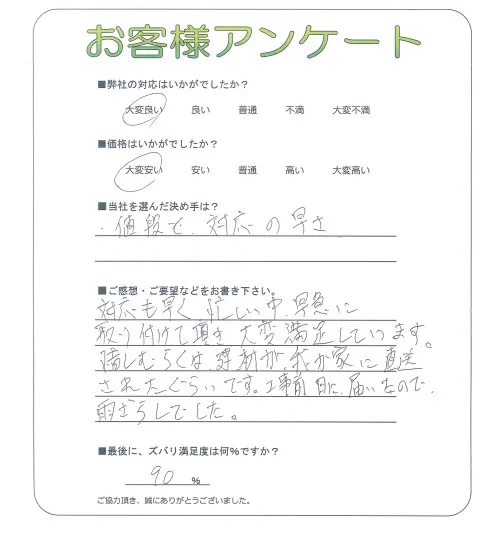 お客様アンケート
■弊社の対応はいかがでしたか？
大変良い 良い 普通 不満 大変不満
■価格はいかがでしたか？
大変安い 安い 普通 高い 大変高い
■当社を選んだ決め手は？
・値段で、対応の早さ
■ご感想・ご要望などをお書き下さい。
対応も早く、忙しい中、早急に
取り付けて頂き大変満足しています。
惜しむらくは、資材が我が家に直送
されたぐらいです。工事前日に、届いたので、
雨ざらしでした。
■最後に、ズバリ満足度は何%ですか？
90 %
ご協力頂き、誠にありがとうございました。